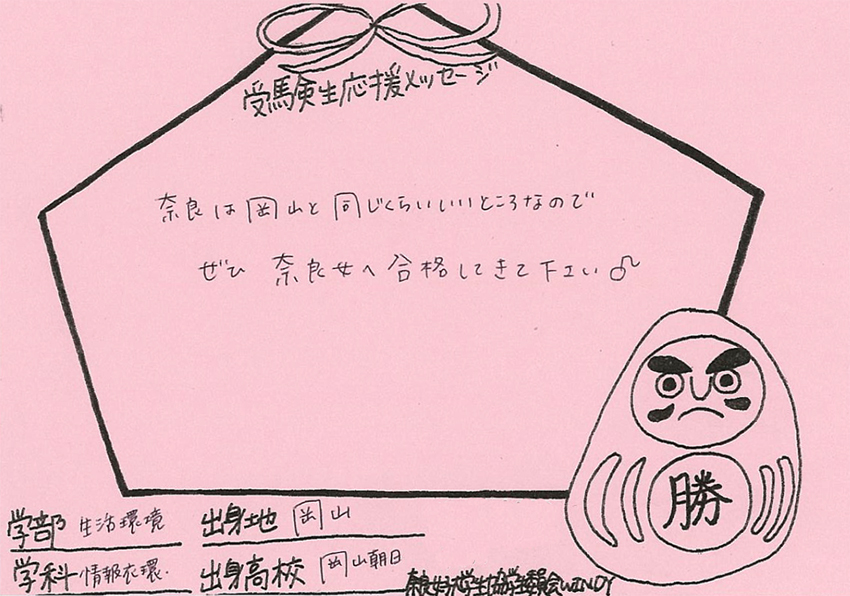 受験生応援メッセージ
奈良は岡山と同じくらいいいところなので
ぜひ 奈良女へ合格してきて下さい♪
勝
学部 生活環境 出身地 岡山
学科 情報衣環. 出身高校 岡山朝日
奈良女子大学生協学生委員会WINDY